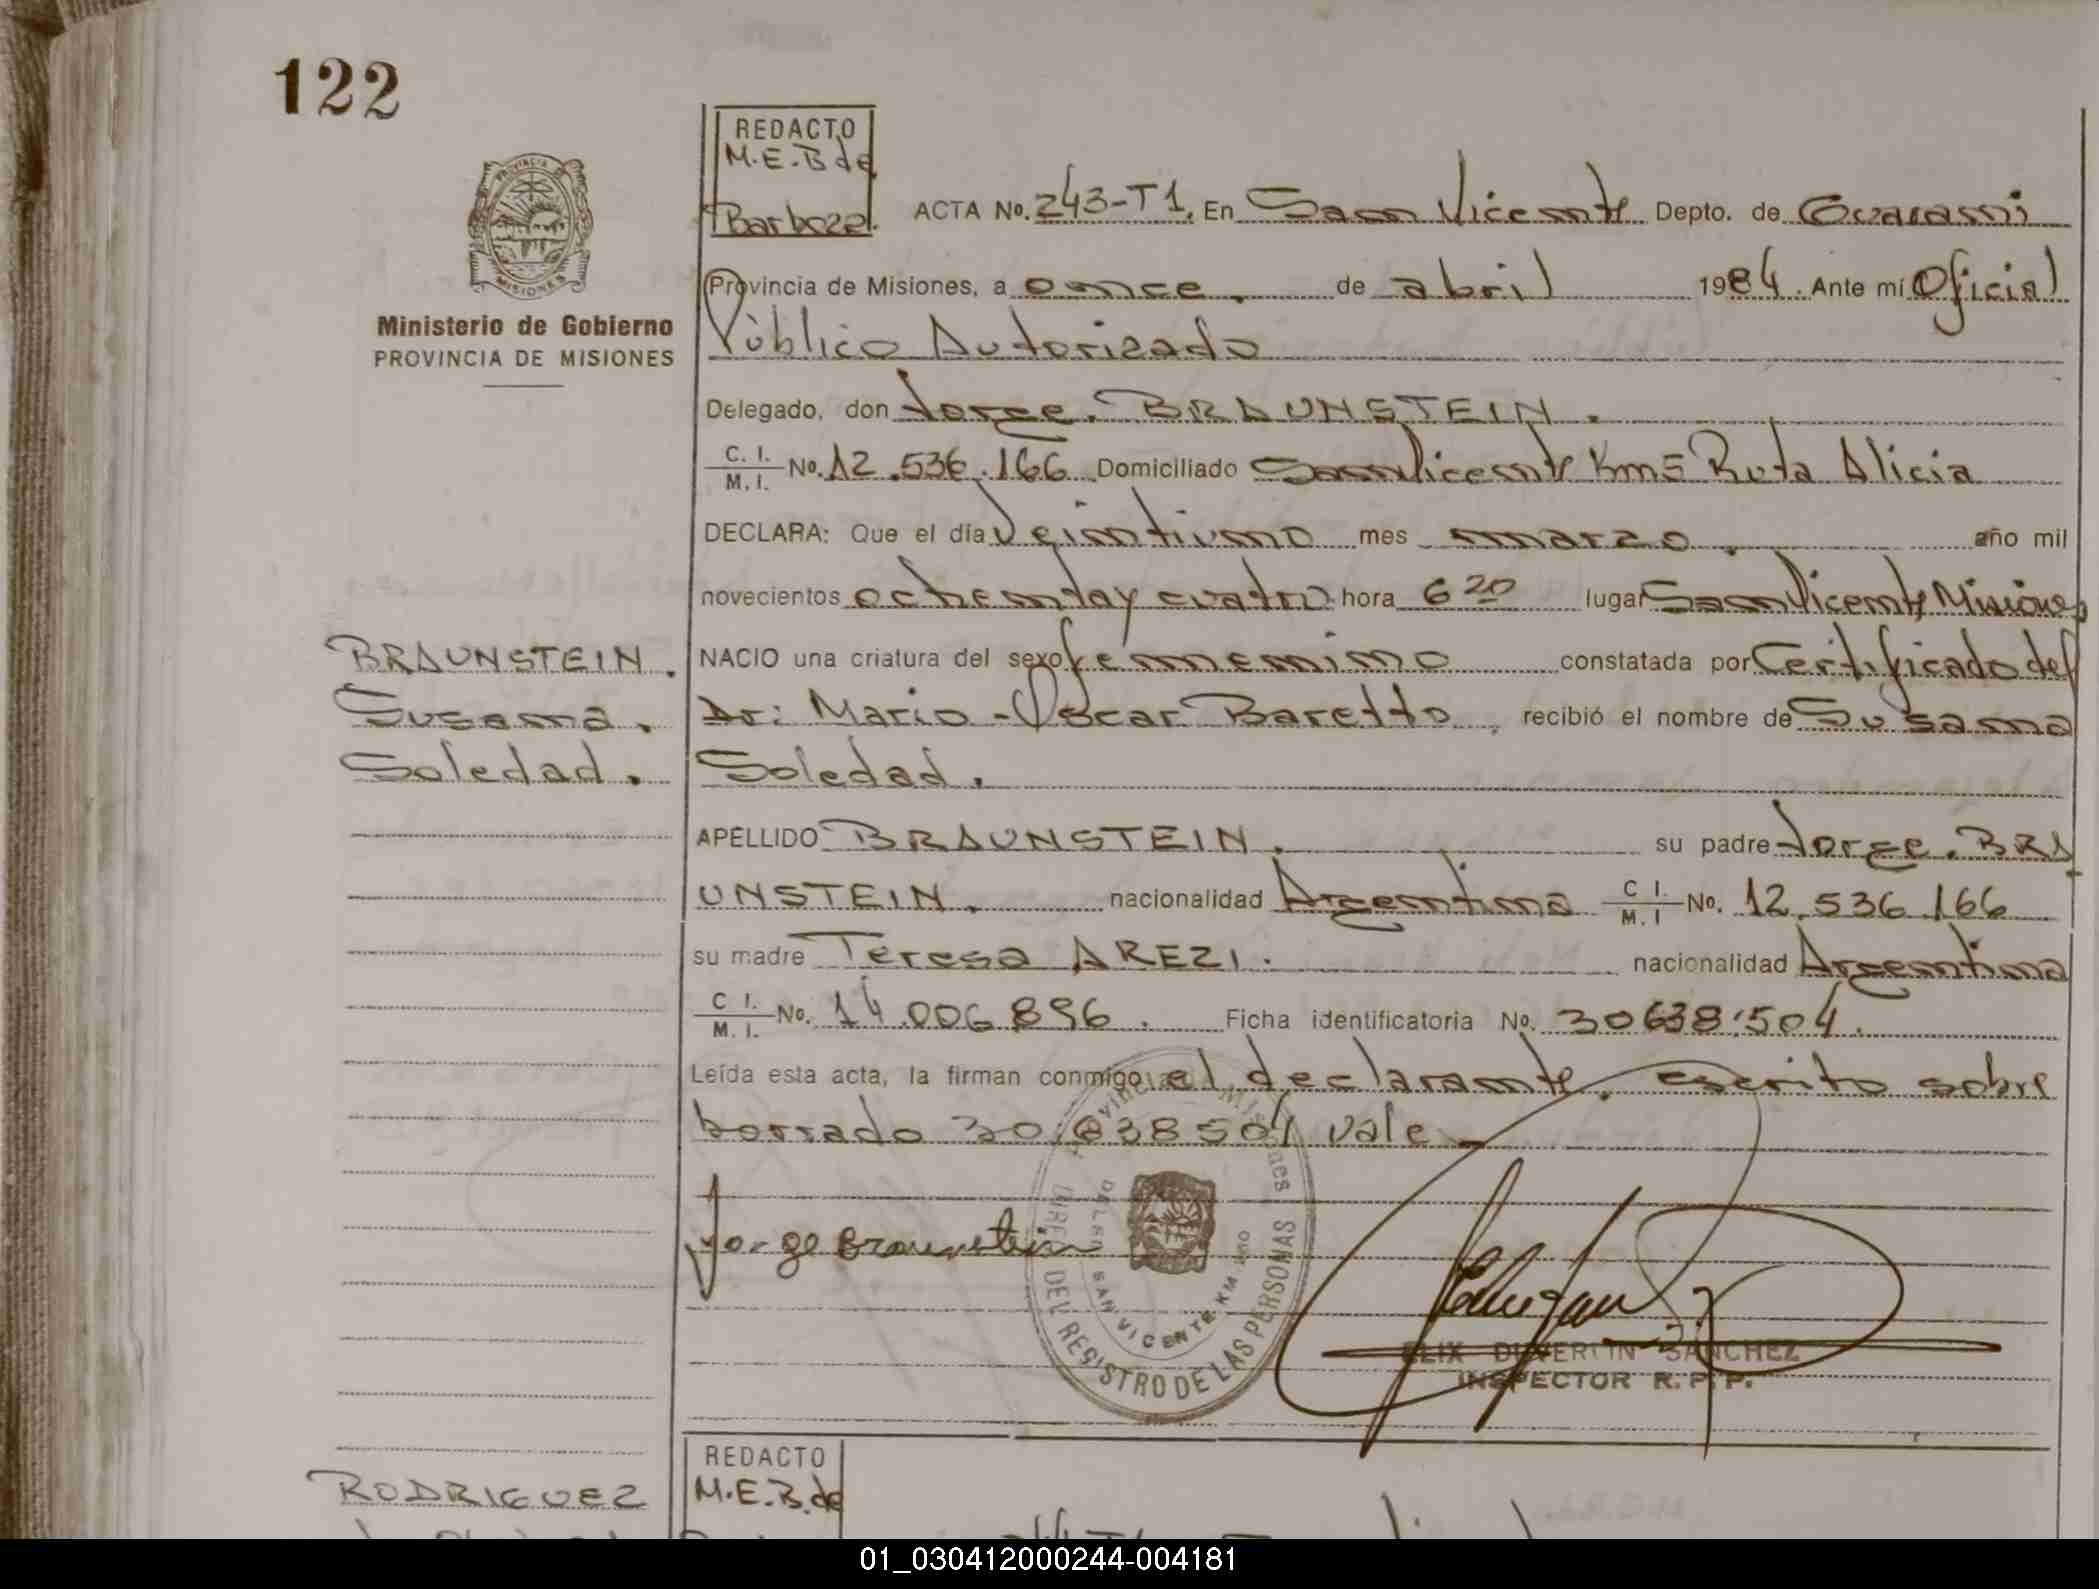 122
REDACTO
M.E.B de
Barboza.
ACTA No. 243-T1. En San Vicente Depto. de Guarani
PROVINCIA DE MISIONES
Provincia de Misiones, a once. de abril 1984. Ante mí Oficial
Ministerio de Gobierno
PROVINCIA DE MISIONES
Público Autorizado
Delegado, don Jorge. BRAUNSTEIN.
C. I. / M. I. No. 12.536.166 Domiciliado San Vicente Km5 Ruta Alicia
DECLARA: Que el día Veintiuno mes marzo. año mil
novecientos ochentay cuatro hora 6 20 lugar San Vicente Misiones
BRAUNSTEIN.
NACIO una criatura del sexo femenino constatada por Certificado del
Susana.
Dr: Mario-Oscar Baretto, recibió el nombre de Susana
Soledad.
Soledad.
APELLIDO BRAUNSTEIN. su padre Jorge. BRA
UNSTEIN. nacionalidad Argentina C I. / M. I No. 12.536.166
su madre Teresa AREZI. nacionalidad Argentina
C I. / M. I. No. 14.006.896. Ficha identificatoria No. 30638.504.
Leída esta acta, la firman conmigo el declarante. escrito sobre
borrado 30.638504 vale
Provincia Misiones
DEL REGISTRO DE LAS PERSONAS
SAN VICENTE KM
Jorge Braunstein
SANCHEZ
INSPECTOR R. P. P.
REDACTO
M.E.B. de
RODRIGUEZ
01_030412000244-004181